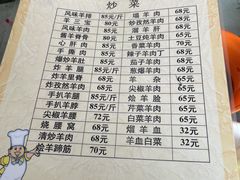 炒菜
风味羊排 85元/斤 爆羊肉 68元
羊三宝 80元 炒孜然羊肉 68元
风味羊肉 85元/斤 溜羊肝 68元
酱羊脊骨 80元 土豆炖羊肉 65元
心肝肉 85元/斤 香菜羊肉 70元
手撕肉 85元/斤 辣子羊肉丁 68元
爆炒羊肚 85元/斤 茄子羊肉 68元
炸羊腿 85元/斤 葱爆羊肉 68元
炸羊里脊 68元 羊杂 65元
炸孜然羊肉 68元 尖椒羊杂 65元
手扒羊腿 85元/斤 烩羊脸 65元
手扒羊脖 85元/斤 芹菜羊肉 65元
尖椒羊腰 72元 白菜羊肉 65元
烧腰窝 68元 熘羊血 32元
清炒羊肉 68元 羊血白菜 32元
烩羊蹄筋 70元